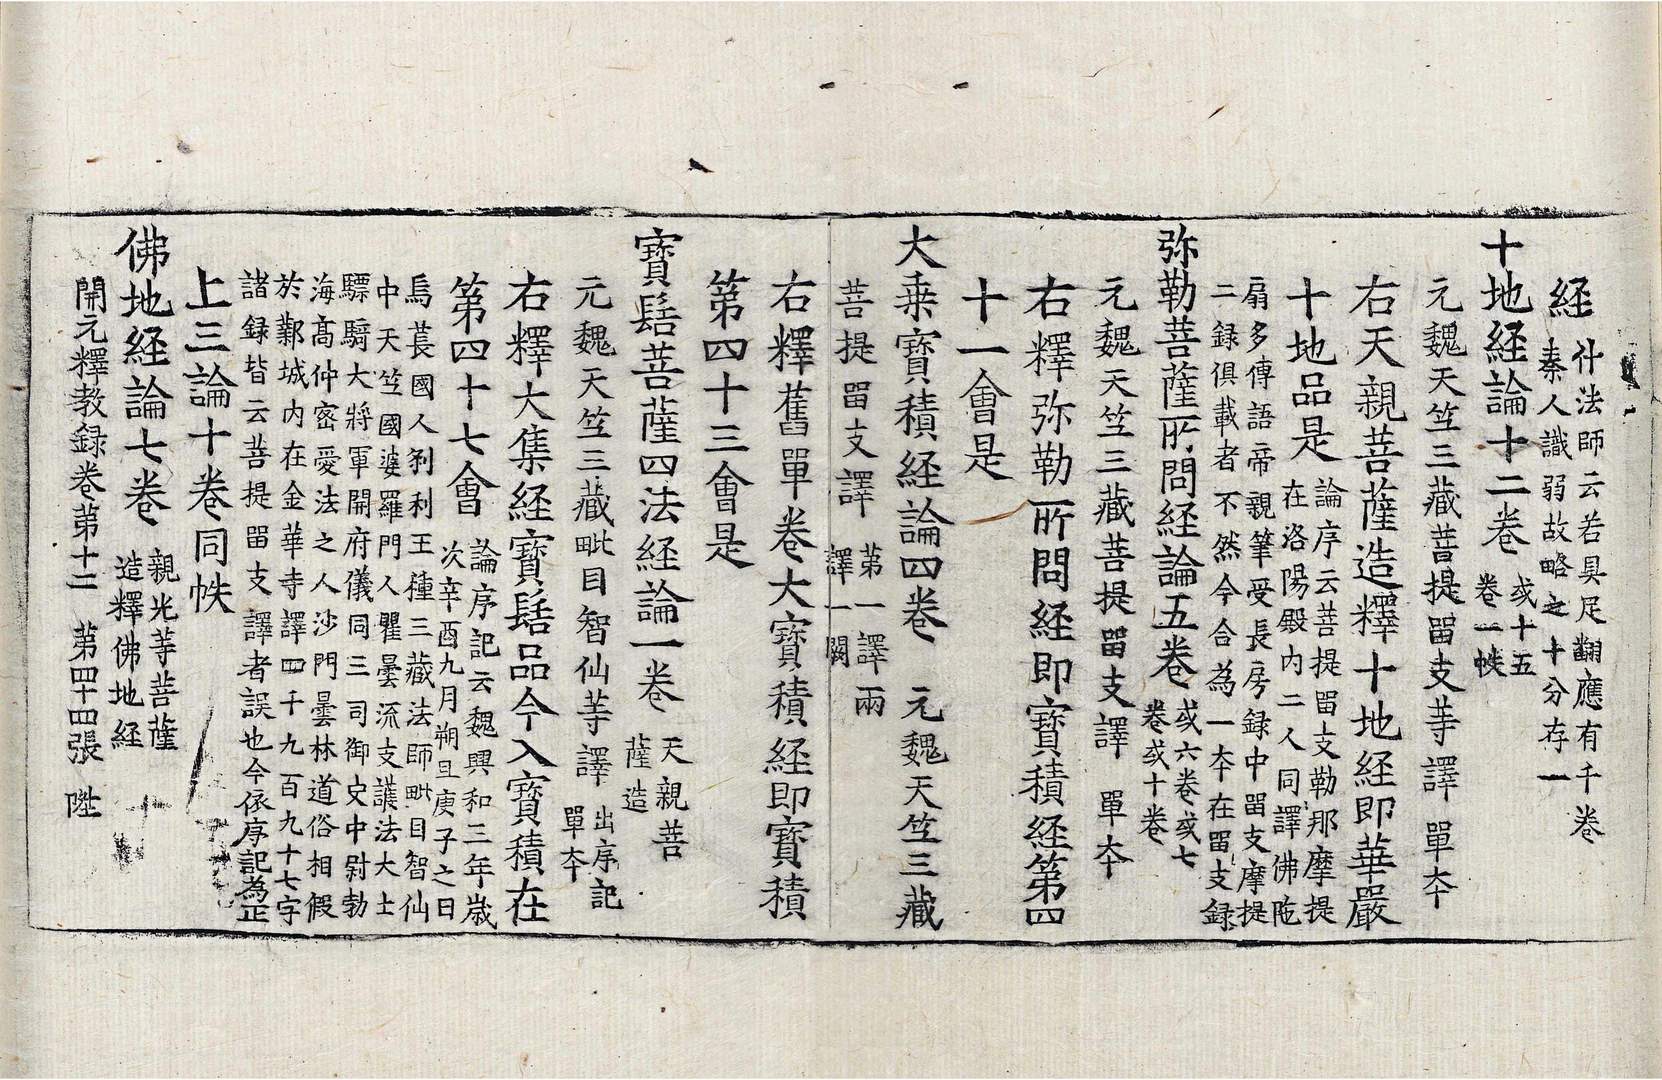 経
什法師云若具足翻應有千卷
秦人識弱故略之十分存一
十地経論十二卷
或十五
卷一帙
元魏天竺三藏菩提畱支䓁譯 單夲
右天親菩薩造釋十地経即華嚴
十地品是
論序云菩提畱支勒那摩提
在洛陽殿內二人同譯佛陁
扇多傳語帝親筆受長房録中畱支摩提
二録俱載者不然今合為一夲在畱支録
弥勒菩薩所問経論五卷
或六卷或七
卷或十卷
元魏天竺三藏菩提畱支譯 單夲
右釋弥勒所問経即寶積経第四
十一會是
大乗寶積経論四卷 元魏天竺三藏
菩提畱支譯
第一譯兩
譯一闕
右釋舊單卷大寶積経即寶積
第四十三會是
寶髻菩薩四法経論一卷
天親菩
薩造
元魏天竺三藏毗目智仙䓁譯
出序記
單夲
右釋大集経寶髻品今入寶積在
第四十七會
論序記云魏興和三年歲
次辛酉九月朔旦庚子之日
烏萇國人刹利王種三藏法師毗目智仙
中天竺國婆羅門人瞿曇流支護法大士
驃騎大將軍開府儀同三司御史中尉勃
海高仲密愛法之人沙門曇林道俗相假
於鄴城內在金華寺譯四千九百九十七字
諸録皆云菩提畱支譯者誤也今依序記為正
上三論十卷同帙
佛地経論七卷
親光䓁菩薩
造釋佛地経
開元釋教録卷第十二 第四十四張 陞